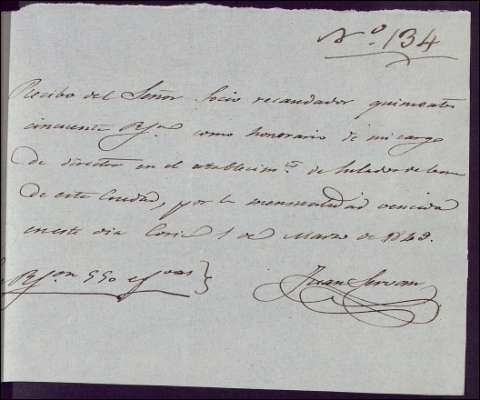 Nº. 134
Recibo del Señor Socio recaudador quinientos
cincuenta Rs.on como honorario de mi cargo
de director en el establecim.to de hilados de lana
de esta Ciudad, por la mensualidad vencida
en este dia Coria 1 de Marzo de 1849.
Rs.on 550
Juan Servan